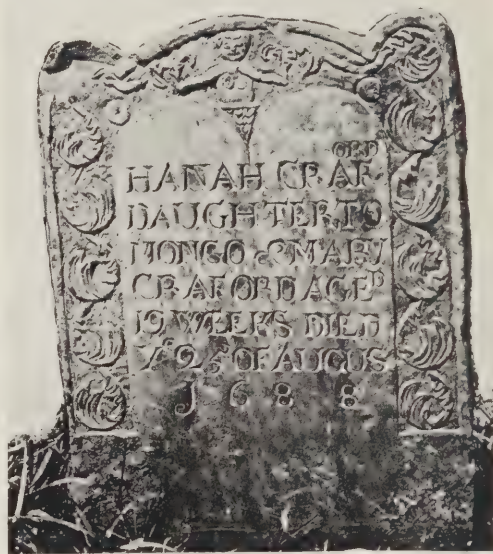 ORD
HANAH CRAF
DAUGHTER TO
MONGO & MARY
CRAFORD AGED
19 WEEKS DIED
Yᵉ 25 OF AUGUS
1688